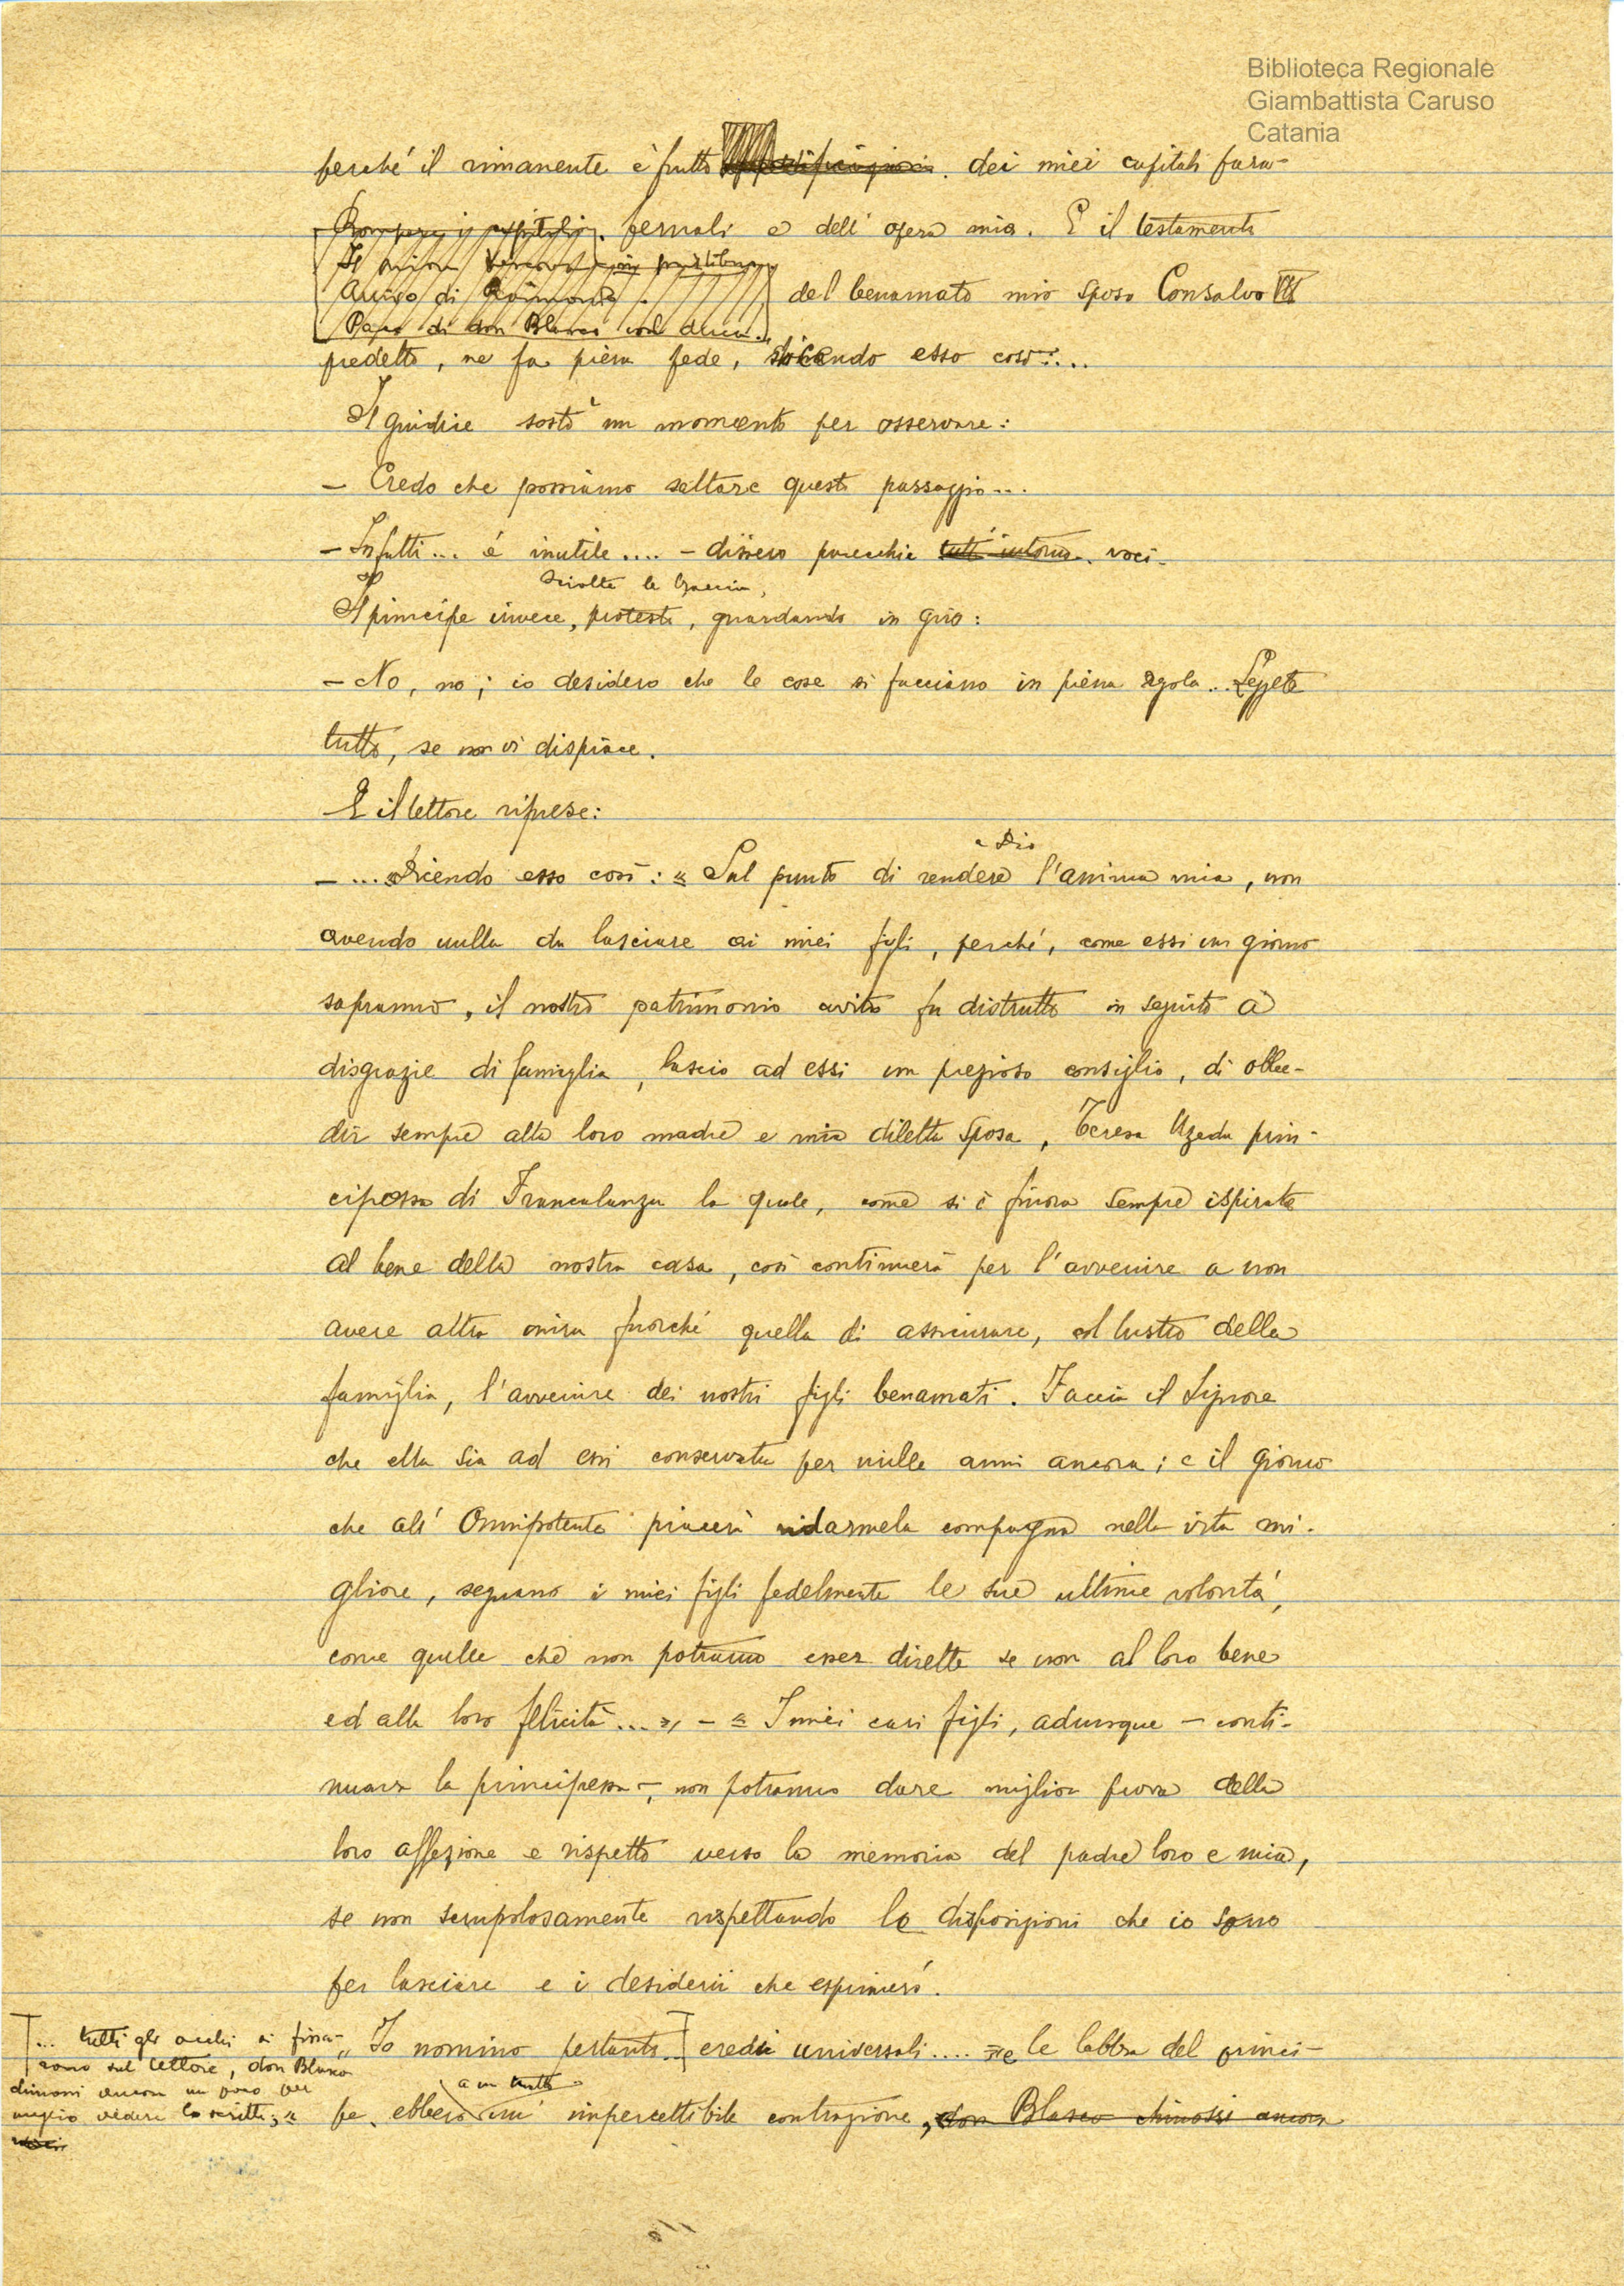 Biblioteca Regionale
Giambattista Caruso
Catania
perché il rimanente è frutto dei miei capitali para-
fernali e dell'opera mia. E il testamento
Avviso di
Papa di don Blasco col duca.
del benamato mio sposo Consalvo VII
predetto, ne fa piena fede, dicendo esso così....
Il giudice sostò un momento per osservare:
— Credo che possiamo saltare questo passaggio...
— Infatti... è inutile.... — dissero parecchie tutt'intorno voci.
sciolte le braccia,
Il principe invece, protestò, guardando in giro:
— No, no; io desidero che le cose si facciano in piena regola... Leggete
tutto, se non vi dispiace.
E il lettore riprese:
a Dio
— ... «dicendo esso così: « Sul punto di rendere l'anima mia, non
avendo nulla da lasciare ai miei figli, perché, come essi un giorno
sapranno, il nostro patrimonio avito fu distrutto in seguito a
disgrazie di famiglia, lascio ad essi un prezioso consiglio, di obbe-
dir sempre alla loro madre e mia diletta sposa, Teresa Uzeda prin-
cipessa di Francalanza la quale, come si è finora sempre ispirata
al bene della nostra casa, così continuerà per l'avvenire a non
avere altra mira fuorché quella di assicurare, col lustro della
famiglia, l'avvenire dei nostri figli benamati. Faccia il Signore
che ella sia ad essi conservata per mille anni ancora; e il giorno
che all'Onnipotente piacerà ridarmela compagna nella vita mi-
gliore, seguano i miei figli fedelmente le sue ultime volontà,
come quelle che non potranno esser dirette se non al loro bene
ed alla loro felicità...», — « I miei cari figli, adunque — conti-
nuava la principessa —, non potranno dare miglior prova della
loro affezione e rispetto verso la memoria del padre loro e mio,
se non scrupolosamente rispettando le disposizioni che io sono
per lasciare e i desiderii che esprimerò.
„ Io nomino pertanto... eredi universali.... » e le labbra del princi-
a un tratto
pe ebbero un' impercettibile contrazione, don Blasco chinossi ancora
... tutti gli occhi si fissa-
rono sul lettore, don Blasco
chinossi ancora un poco per
meglio vedere lo scritto; «